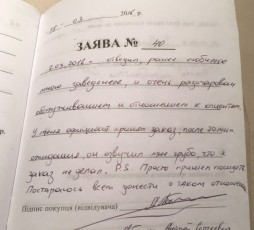 18 - 03 2016 р.
ЗАЯВА № 40
2.03.2016 - посещал, ранее любимое
мною заведение, и очень разочарован
обслуживанием и отношением к клиентам.
У меня официант принял заказ, после долгого
ожидания, он озвучил мне грубо, что я
заказ не делал. P.S. Просто пришел посидеть
Постараюсь всем донести о таком отношении
Підпис покупця (відвідувача)